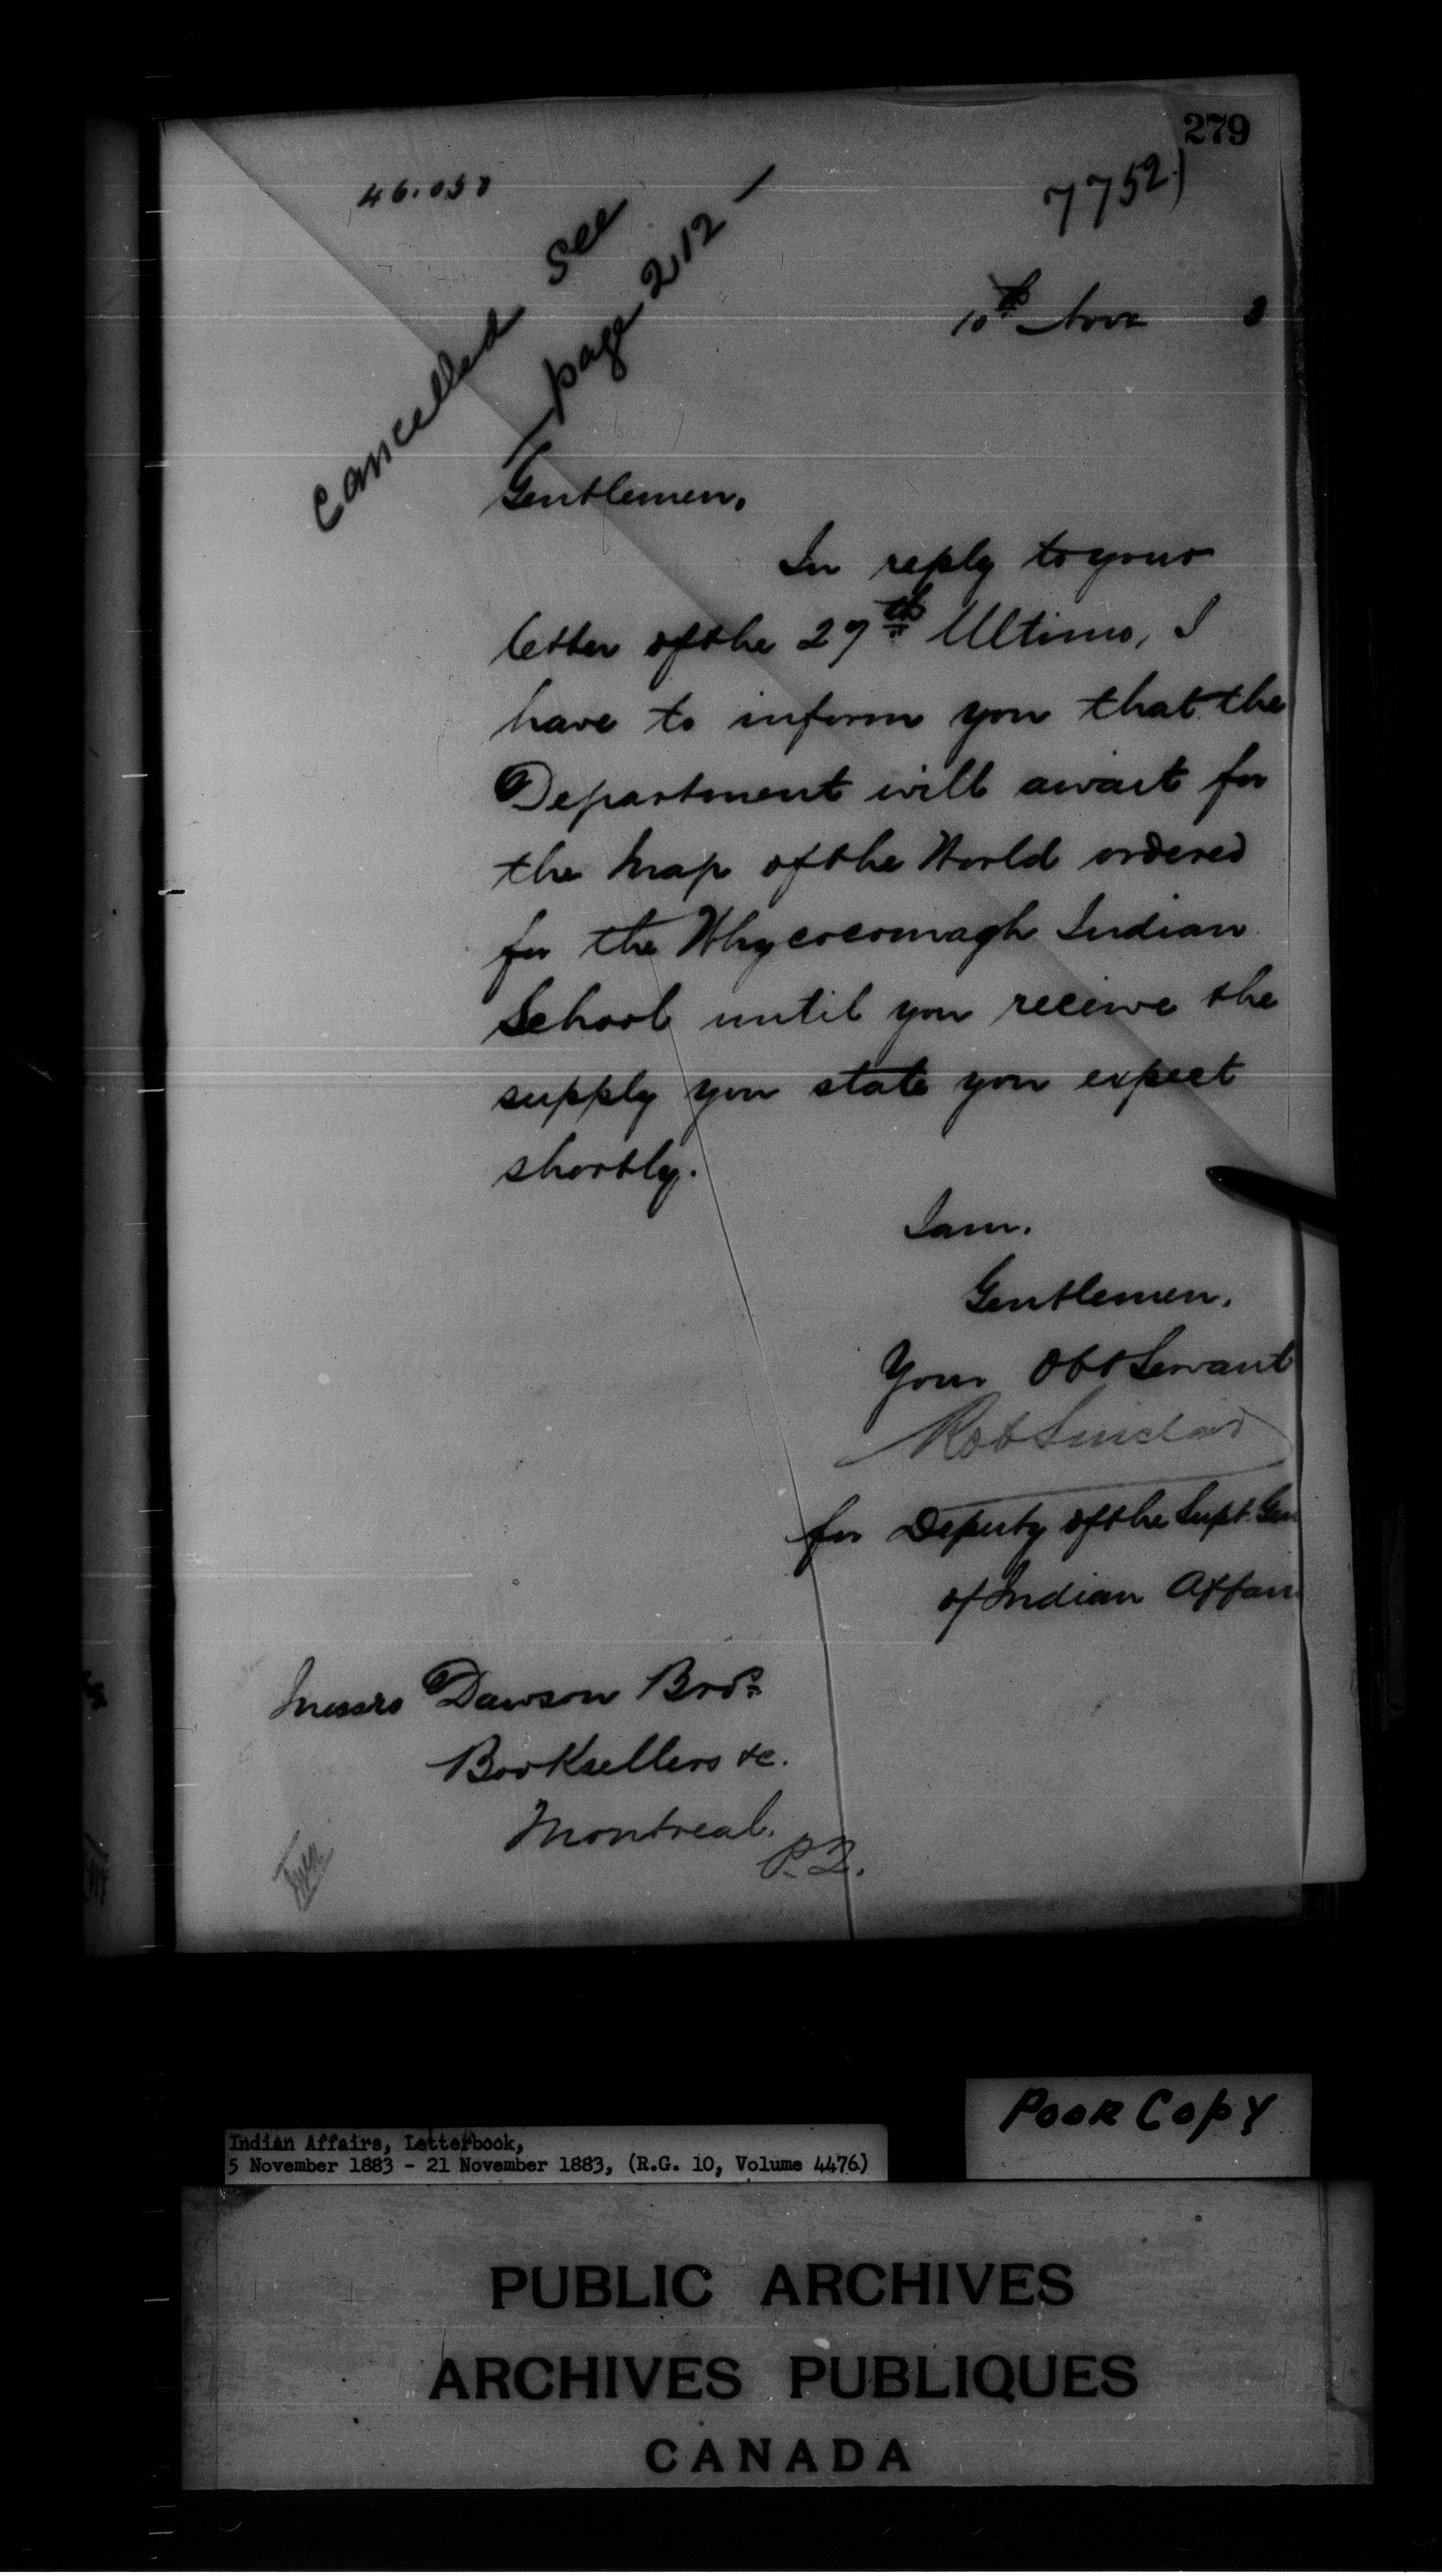 279
46.05
7752)
Cancelled see
page 212 –
10th Novr 3
Gentlemen,
In reply to your
letter of the 27th Ultimo, I
have to inform you that the
Department will await for
the Map of the World ordered
for the Whycocomagh Indian
School until you receive the
supply you state you expect
shortly.
I am.
Gentlemen.
Your Obt Servant
Robt Sinclair
for Deputy of the Supt. Gen
of Indian Affairs
Messrs Dawson Bros.
Booksellers &c.
Montreal.
P.Q.
Poor Copy
Indian Affairs, Letterbook,
5 November 1883 - 21 November 1883, (R.G. 10, Volume 4476)
PUBLIC ARCHIVES
ARCHIVES PUBLIQUES
CANADA